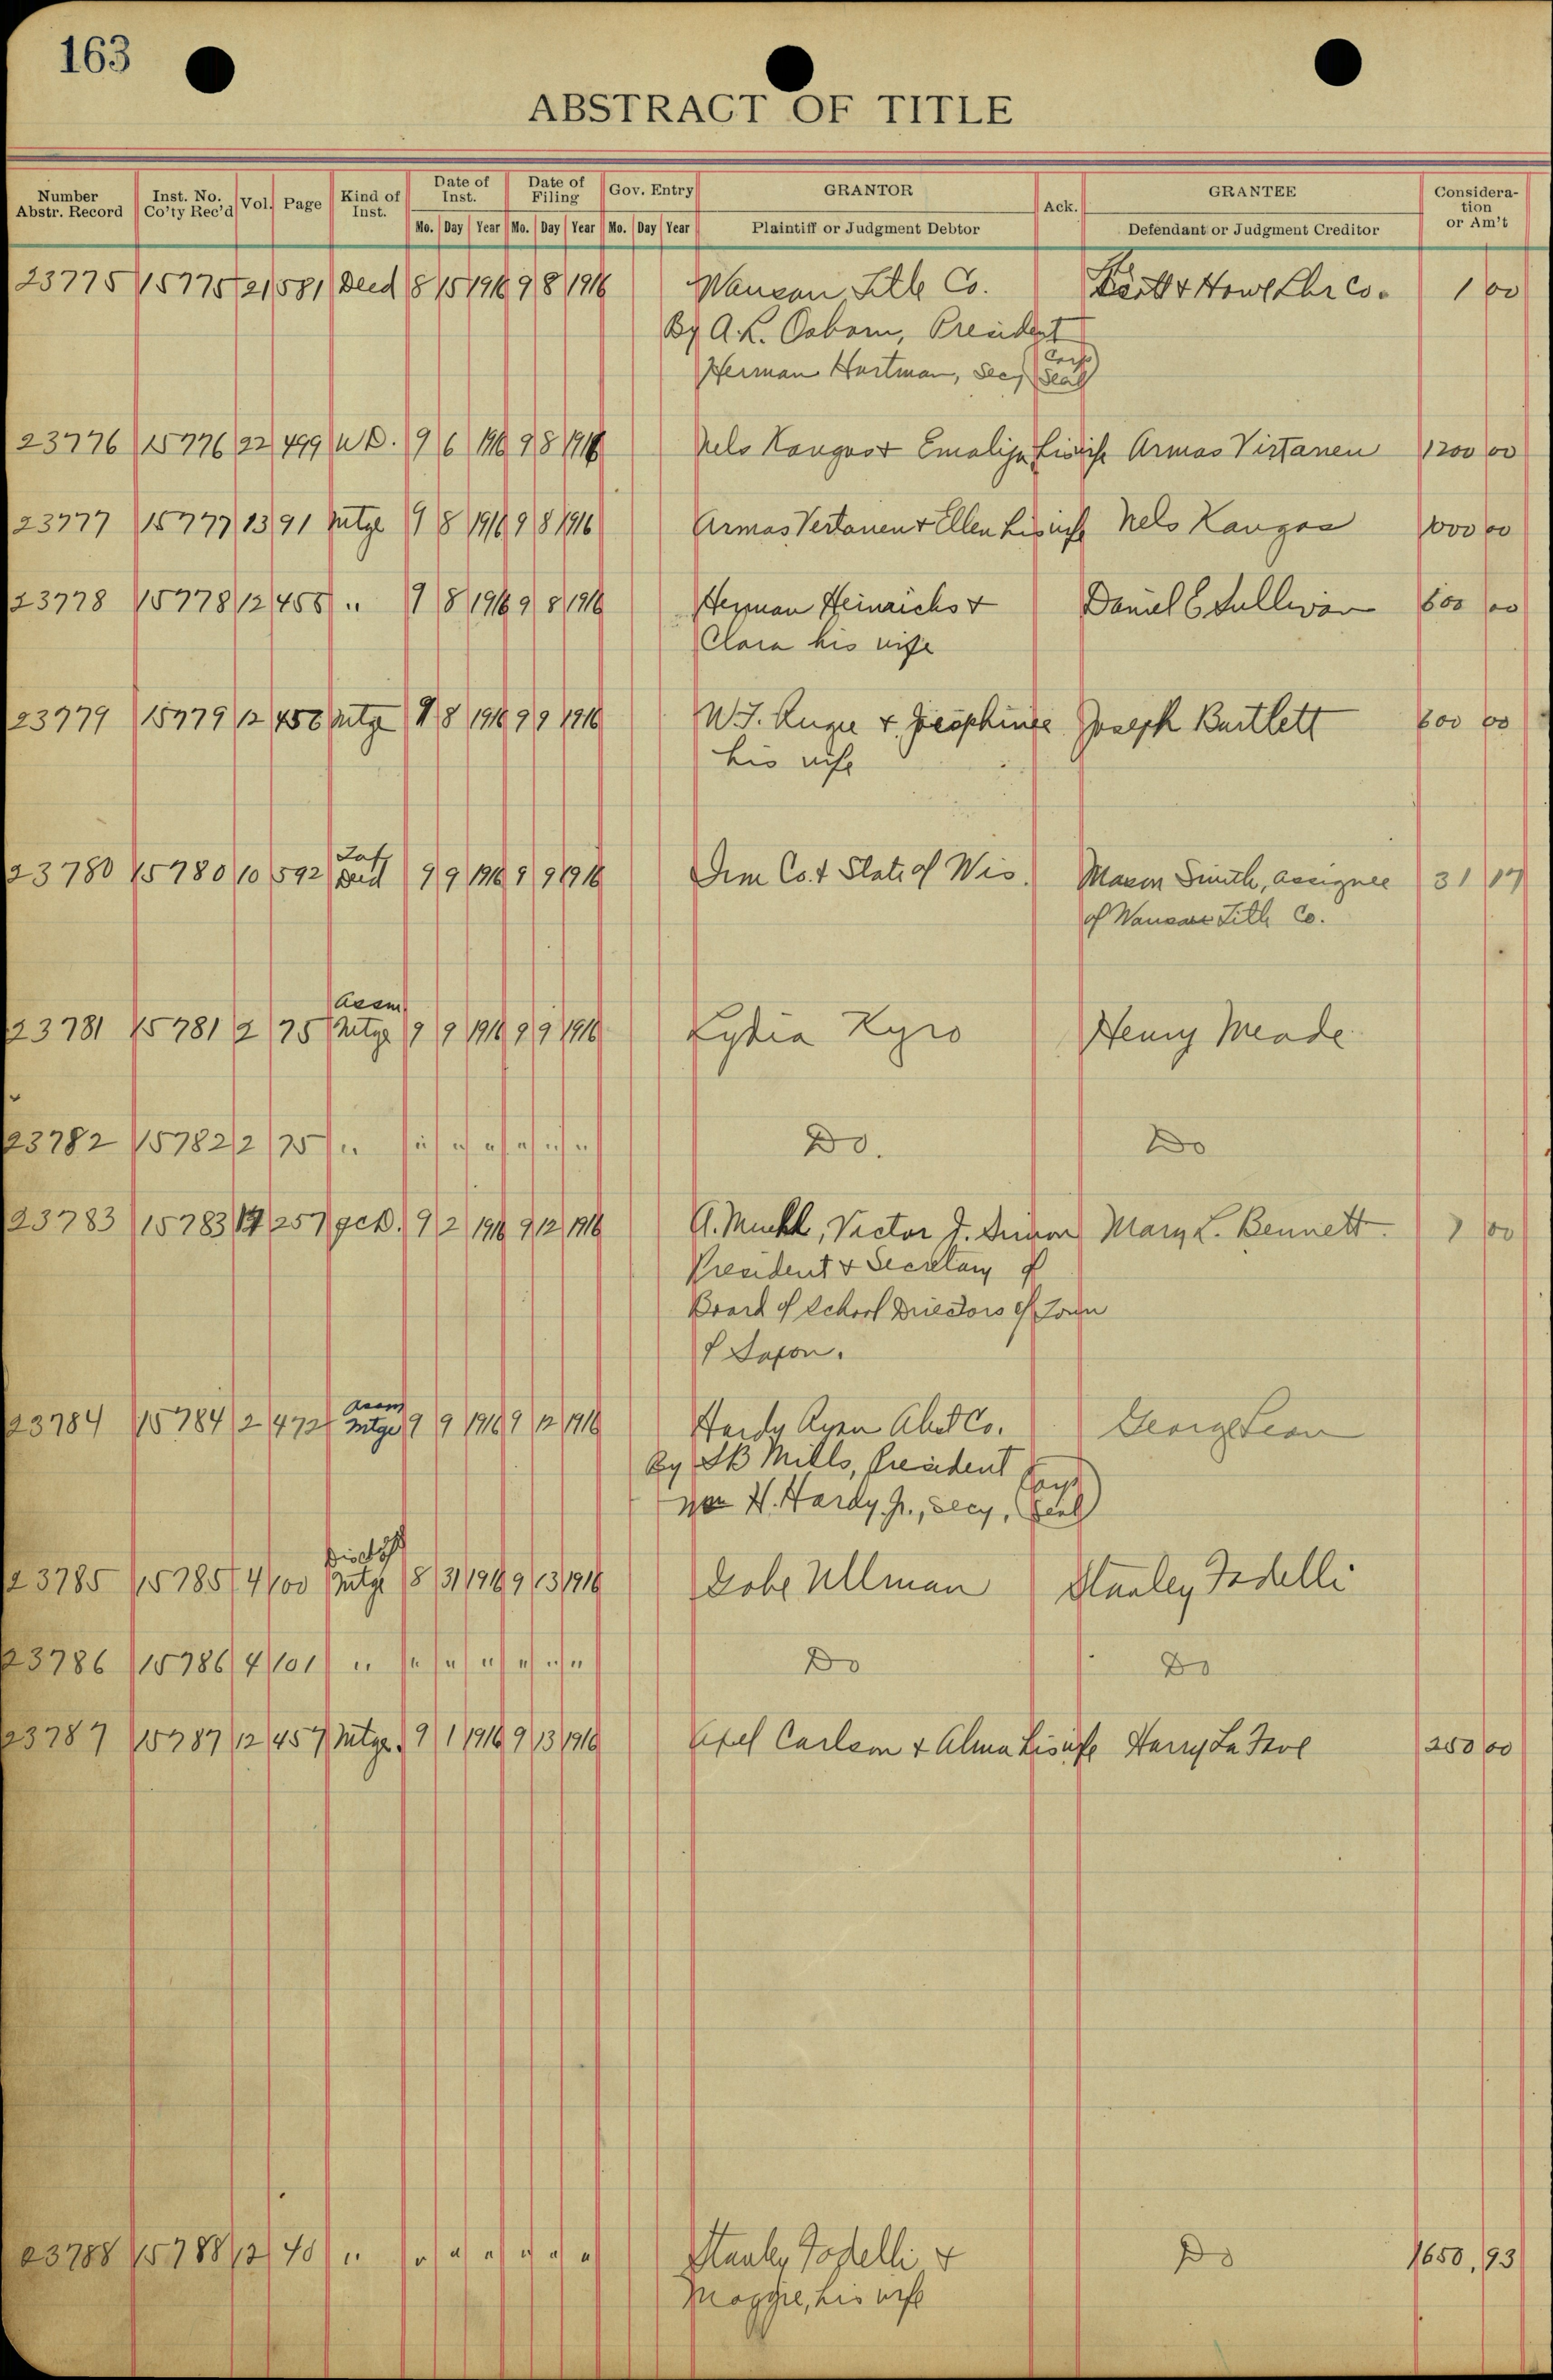 163
ABSTRACT OF TITLE
Number Abstr. Record Inst. No. Co'ty Rec'd Vol. Page Kind of Inst. Date of Inst. Date of Filing Gov. Entry GRANTOR Ack. GRANTEE Consideration or Am't
Mo. Day Year Mo. Day Year Mo. Day Year Plaintiff or Judgment Debtor Defendant or Judgment Creditor
23775 15775 21 581 Deed 8 15 1916 9 8 1916 Wausau Title Co. & Howe Lbr Co. 1 00
By A.L. Osborn, President
Herman Hartman, Secy (Corp Seal)
23776 15776 22 499 W.D. 9 6 1916 9 8 1916 Nels Kangas & Emalija his wife Armas Virtanen 1200 00
23777 15777 13 91 Mtge 9 8 1916 9 8 1916 Armas Vertanen & Ellen his wife Nels Kangas 1000 00
23778 15778 12 455 " 9 8 1916 9 8 1916 Herman Heinrichs & Daniel E Sullivan 600 00
Clara his wife
23779 15779 12 456 Mtge 9 8 1916 9 9 1916 W.J. & Josephine Joseph Bartlett 600 00
his wife
Tax
23780 15780 10 592 Deed 9 9 1916 9 9 1916 Co. & State of Wis. Mason Smith, assignee 31 17
of Wausau Title Co.
Assm
23781 15781 2 75 Mtge 9 9 1916 9 9 1916 Lydia Kyro Henry Meade
23782 15782 2 75 " " " " " " " Do. Do
23783 15783 17 257 qcD. 9 2 1916 9 12 1916 A. , Victor J. Mary L. Bennett. 1 00
President & Secretary of
Board of School Directors of Town
of Saxon.
Assm
23784 15784 2 472 Mtge 9 9 1916 9 12 1916 Hardy Ryan Abst Co. George
By SB Mills, President
Wm H. Hardy Jr., Secy, (Corp Seal)
Disch of
23785 15785 4 100 Mtge 8 31 1916 9 13 1916 Gobe Ullman Stanley Fodelli
23786 15786 4 101 " " " " " " " Do Do
23787 15787 12 457 Mtge. 9 1 1916 9 13 1916 Axel Carlson & Alma his wife Harry La 250 00
23788 15788 12 40 " " " " " " " Stanley Fodelli & Do 1650.93
Maggie, his wife